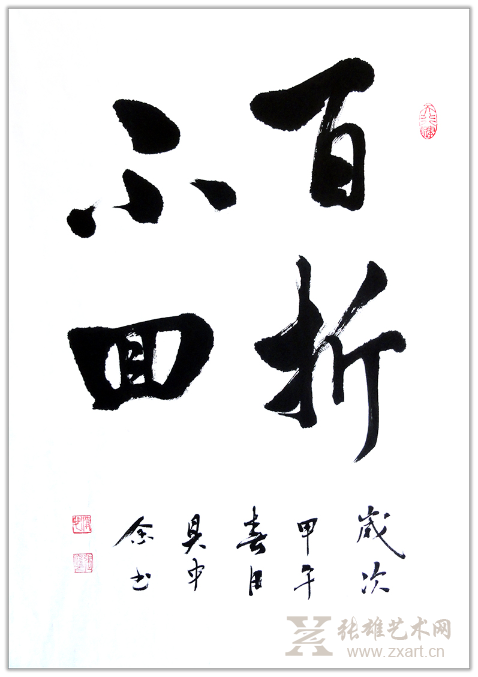 百折
不回
歲次
甲午
春月
书
张雄艺术网
www.zxart.cn